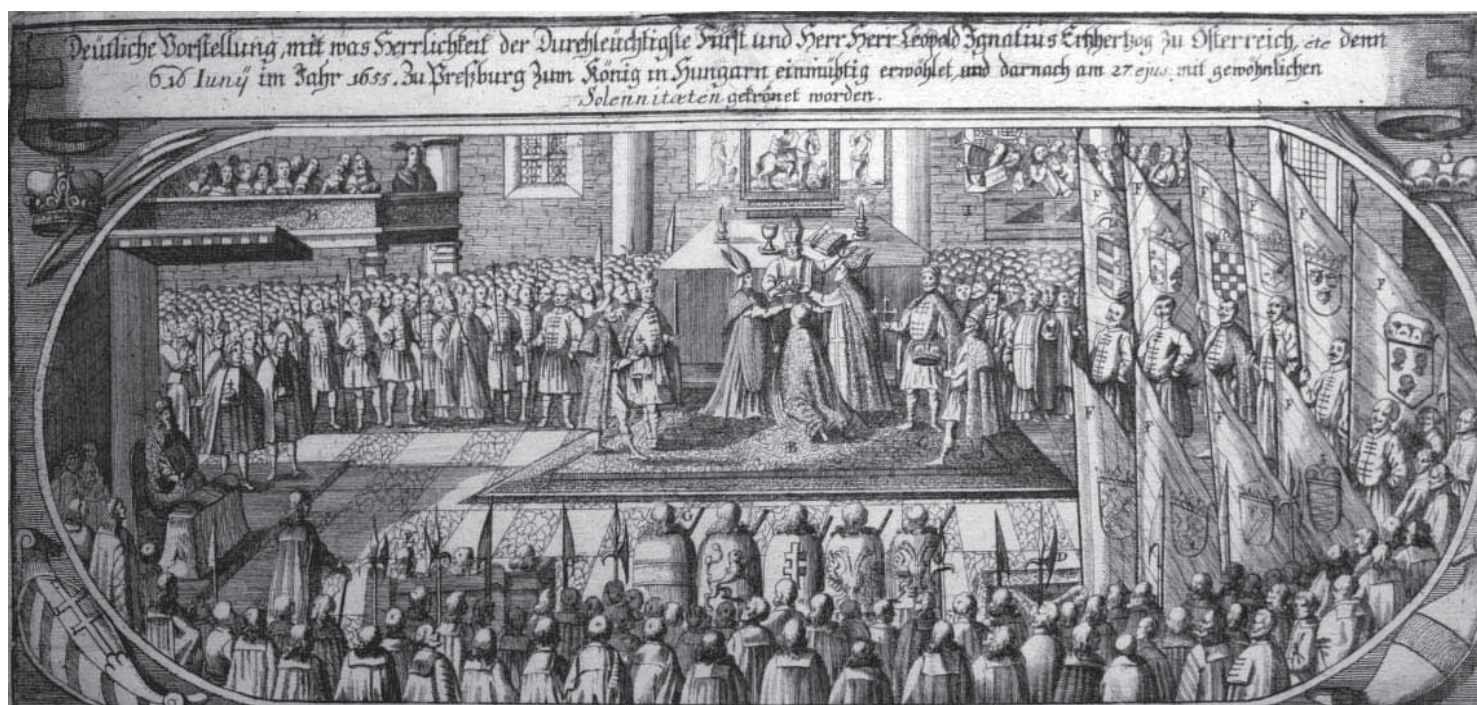 Deütliche Vorstellung, mit was Herrlichkeit der Durchleüchtigste Fürst und Herr Herr Leopold Ignatius Ertzhertzog zu Osterreich, etc denn
Iunÿ im Jahr 1655. Zu Preßburg Zum König in Hungarn einmühtig erwöhlet, und darnach am 27 ejus. mit gewöhnlichen
Solennitæten gekrönet worden.
H
I
F F F F F
F
B
C
F F F F
G
E
D
A